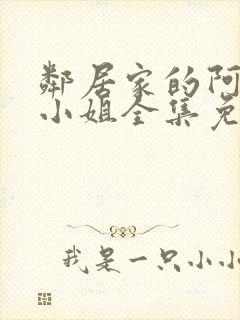 鄰居家的阿
小姐全集免
我是一只小小